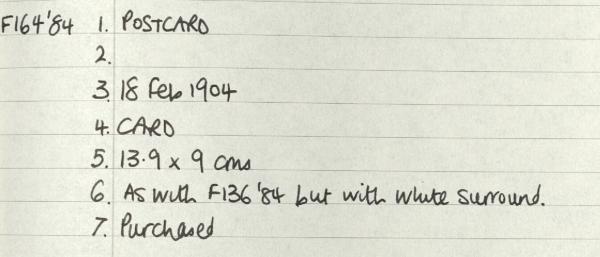 F164'84 1. POSTCARD
2.
3. 18 Feb 1904
4. CARD
5. 13.9 x 9 cms
6. As with F136'84 but with white surround.
7. Purchased